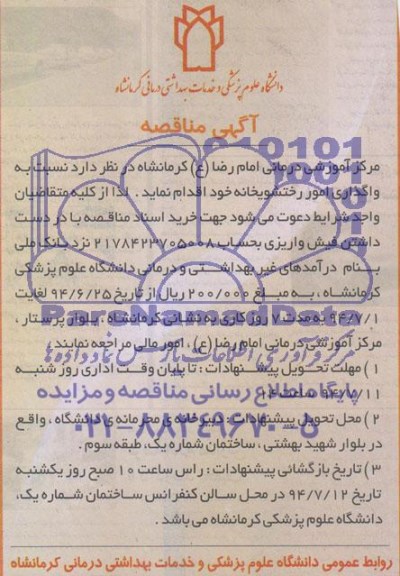 دانشگاه علوم پزشکی و خدمات بهداشتی درمانی کرمانشاه
آگهی مناقصه
مرکز آموزشی درمانی امام رضا (ع) کرمانشاه در نظر دارد نسبت به
واگذاری امور رختشویخانه خود اقدام نماید . لذا از کلیه متقاضیان
واجد شرایط دعوت می شود جهت خرید اسناد مناقصه با در دست
داشتن فیش واریزی بحساب ۲۱۷۸۴۲۳۷۰۵۰۰۸ نزد بانک ملی
بنام درآمدهای غیر بهداشتی و درمانی دانشگاه علوم پزشکی
کرمانشاه ، به مبلغ ۲۰۰/۰۰۰ ریال از تاریخ ۹۴/۶/۲۵ لغایت
۹۴/۷/۱ به مدت ۷ روز کاری به نشانی کرمانشاه ، بلوار پرستار ،
مرکز آموزشی درمانی امام رضا (ع) ، امور مالی مراجعه نمایند .
ParsNamadData
مرکز فرآوری اطلاعات پارس نماد داده ها
۱) مهلت تحویل پیشنهادات : تا پایان وقت اداری روز شنبه
۹۴/۷/۱۱ ساعت ۱۴
پایگاه اطلاع رسانی مناقصه و مزایده
۲) محل تحویل پیشنهادات : دبیرخانه محرمانه دانشگاه ، واقع
۰۲۱-۸۸۳۴۹۶۷۰-۵
در بلوار شهید بهشتی ، ساختمان شماره یک، طبقه سوم .
۳) تاریخ بازگشائی پیشنهادات : راس ساعت ۱۰ صبح روز یکشنبه
تاریخ ۹۴/۷/۱۲ در محل سالن کنفرانس ساختمان شماره یک،
دانشگاه علوم پزشکی کرمانشاه می باشد .
روابط عمومی دانشگاه علوم پزشکی و خدمات بهداشتی درمانی کرمانشاه